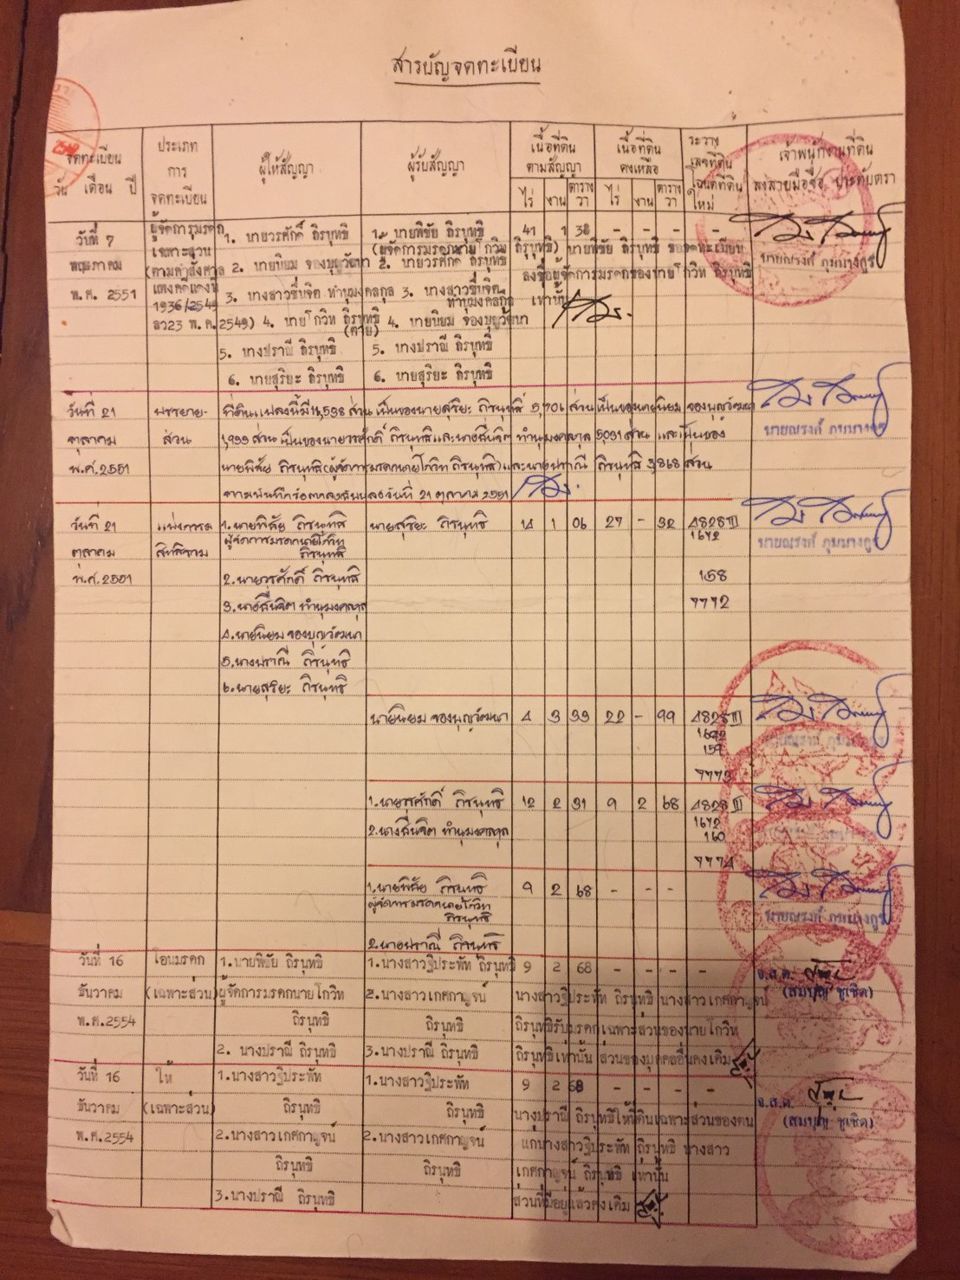 สารบัญจดทะเบียน
จดทะเบียน
วัน เดือน ปี
ประเภท
การ
จดทะเบียน
ผู้ให้สัญญา
ผู้รับสัญญา
เนื้อที่ดิน
ตามสัญญา
ไร่ งาน ตาราง
วา
เนื้อที่ดิน
คงเหลือ
ไร่ งาน ตาราง
วา
ระวาง
เลขที่ดิน
โฉนดที่ดิน
ใหม่
เจ้าพนักงานที่ดิน
ลงลายมือชื่อ ประทับตรา
วันที่ 7
พฤษภาคม
พ.ศ. 2551
ผู้จัดการมรดก
เฉพาะส่วน
(ตามคำสั่งศาล
แพ่งคดีแดงที่
1936/2549
ลว23 พ.ค.2549)
1. นายวรศักดิ์ ถิรนุทธิ
2. นายนิยม จองบุญวัฒนา
3. นางสาวชื่นจิต ทำนุมงคลกุล
4. นายโกวิท ถิรนุทธิ
(ตาย)
5. นางปราณี ถิรนุทธิ
6. นายสุริยะ ถิรนุทธิ
1. นายพิชัย ถิรนุทธิ
(ผู้จัดการมรดกนายโกวิท ถิรนุทธิ)
2. นายวรศักดิ์ ถิรนุทธิ
3. นางสาวชื่นจิต
ทำนุมงคลกุล
4. นายนิยม จองบุญวัฒนา
5. นางปราณี ถิรนุทธิ
6. นายสุริยะ ถิรนุทธิ
41 1 38 - - - -
นายพิชัย ถิรนุทธิ ขอจดทะเบียน
ลงชื่อผู้จัดการมรดกของนายโกวิท ถิรนุทธิ
เท่านั้น
นายณรงค์ ภุมบางกูร
วันที่ 21
ตุลาคม
พ.ศ.2551
บรรยาย
ส่วน
ที่ดินแปลงนี้มี 16,538 ส่วน เป็นของนายสุริยะ ถิรนุทธิ 5,706 ส่วน เป็นของนายนิยม จองบุญวัฒนา
1,933 ส่วน เป็นของนายวรศักดิ์ ถิรนุทธิ และนางสาวชื่นจิต ทำนุมงคลกุล 5,031 ส่วน และเป็นของ
นายพิชัย ถิรนุทธิ (ผู้จัดการมรดกนายโกวิท ถิรนุทธิ) และนางปราณี ถิรนุทธิ 3,868 ส่วน
ตามบันทึกข้อตกลงฉบับลงวันที่ 21 ตุลาคม 2551
นายณรงค์ ภุมบางกูร
วันที่ 21
ตุลาคม
พ.ศ.2551
แบ่งกรรม
สิทธิ์รวม
1.นายพิชัย ถิรนุทธิ
ผู้จัดการมรดกนายโกวิท
ถิรนุทธิ
2.นายวรศักดิ์ ถิรนุทธิ
3.นางสาวชื่นจิต ทำนุมงคลกุล
4.นายนิยม จองบุญวัฒนา
5.นางปราณี ถิรนุทธิ
6.นายสุริยะ ถิรนุทธิ
นายสุริยะ ถิรนุทธิ 14 1 06 27 - 32 4828 III
1672
158
7772
นายณรงค์ ภุมบางกูร
นายนิยม จองบุญวัฒนา 4 3 33 22 - 99 4828 III
159
7773
นายณรงค์ ภุมบางกูร
ถิรนุทธิ 12 2 31 9 2 68 4828 III
ทำนุมงคลกุล 1672
160
7774
1.นายพิชัย ถิรนุทธิ 9 2 68 - - -
ผู้จัดการมรดกนายโกวิท
ถิรนุทธิ
2.นางปราณี ถิรนุทธิ
นายณรงค์ ภุมบางกูร
วันที่ 16
ธันวาคม
พ.ศ.2554
โอนมรดก
(เฉพาะส่วน)
1.นายพิชัย ถิรนุทธิ
ผู้จัดการมรดกนายโกวิท
ถิรนุทธิ
2. นางปราณี ถิรนุทธิ
1.นางสาวฐิประทัพ ถิรนุทธิ
2.นางสาวเกศกาญจน์
ถิรนุทธิ
3.นางปราณี ถิรนุทธิ
9 2 68 - - - -
นางสาวฐิประทัพ ถิรนุทธิ นางสาวเกศกาญจน์
ถิรนุทธิรับมรดกเฉพาะส่วนของนายโกวิท
ถิรนุทธิเท่านั้น ส่วนของบุคคลอื่นคงเดิม
จ.ส.ต.
(สมบุญ ชูเชิด)
วันที่ 16
ธันวาคม
พ.ศ.2554
ให้
(เฉพาะส่วน)
1.นางสาวฐิประทัพ
ถิรนุทธิ
2.นางสาวเกศกาญจน์
ถิรนุทธิ
3.นางปราณี ถิรนุทธิ
1.นางสาวฐิประทัพ
ถิรนุทธิ
2.นางสาวเกศกาญจน์
ถิรนุทธิ
9 2 68 - - - -
นางปราณี ถิรนุทธิให้ที่ดินเฉพาะส่วนของตน
แก่นางสาวฐิประทัพ ถิรนุทธิ นางสาว
เกศกาญจน์ ถิรนุทธิ เท่านั้น
ส่วนที่มีอยู่แล้วคงเดิม
จ.ส.ต.
(สมบุญ ชูเชิด)